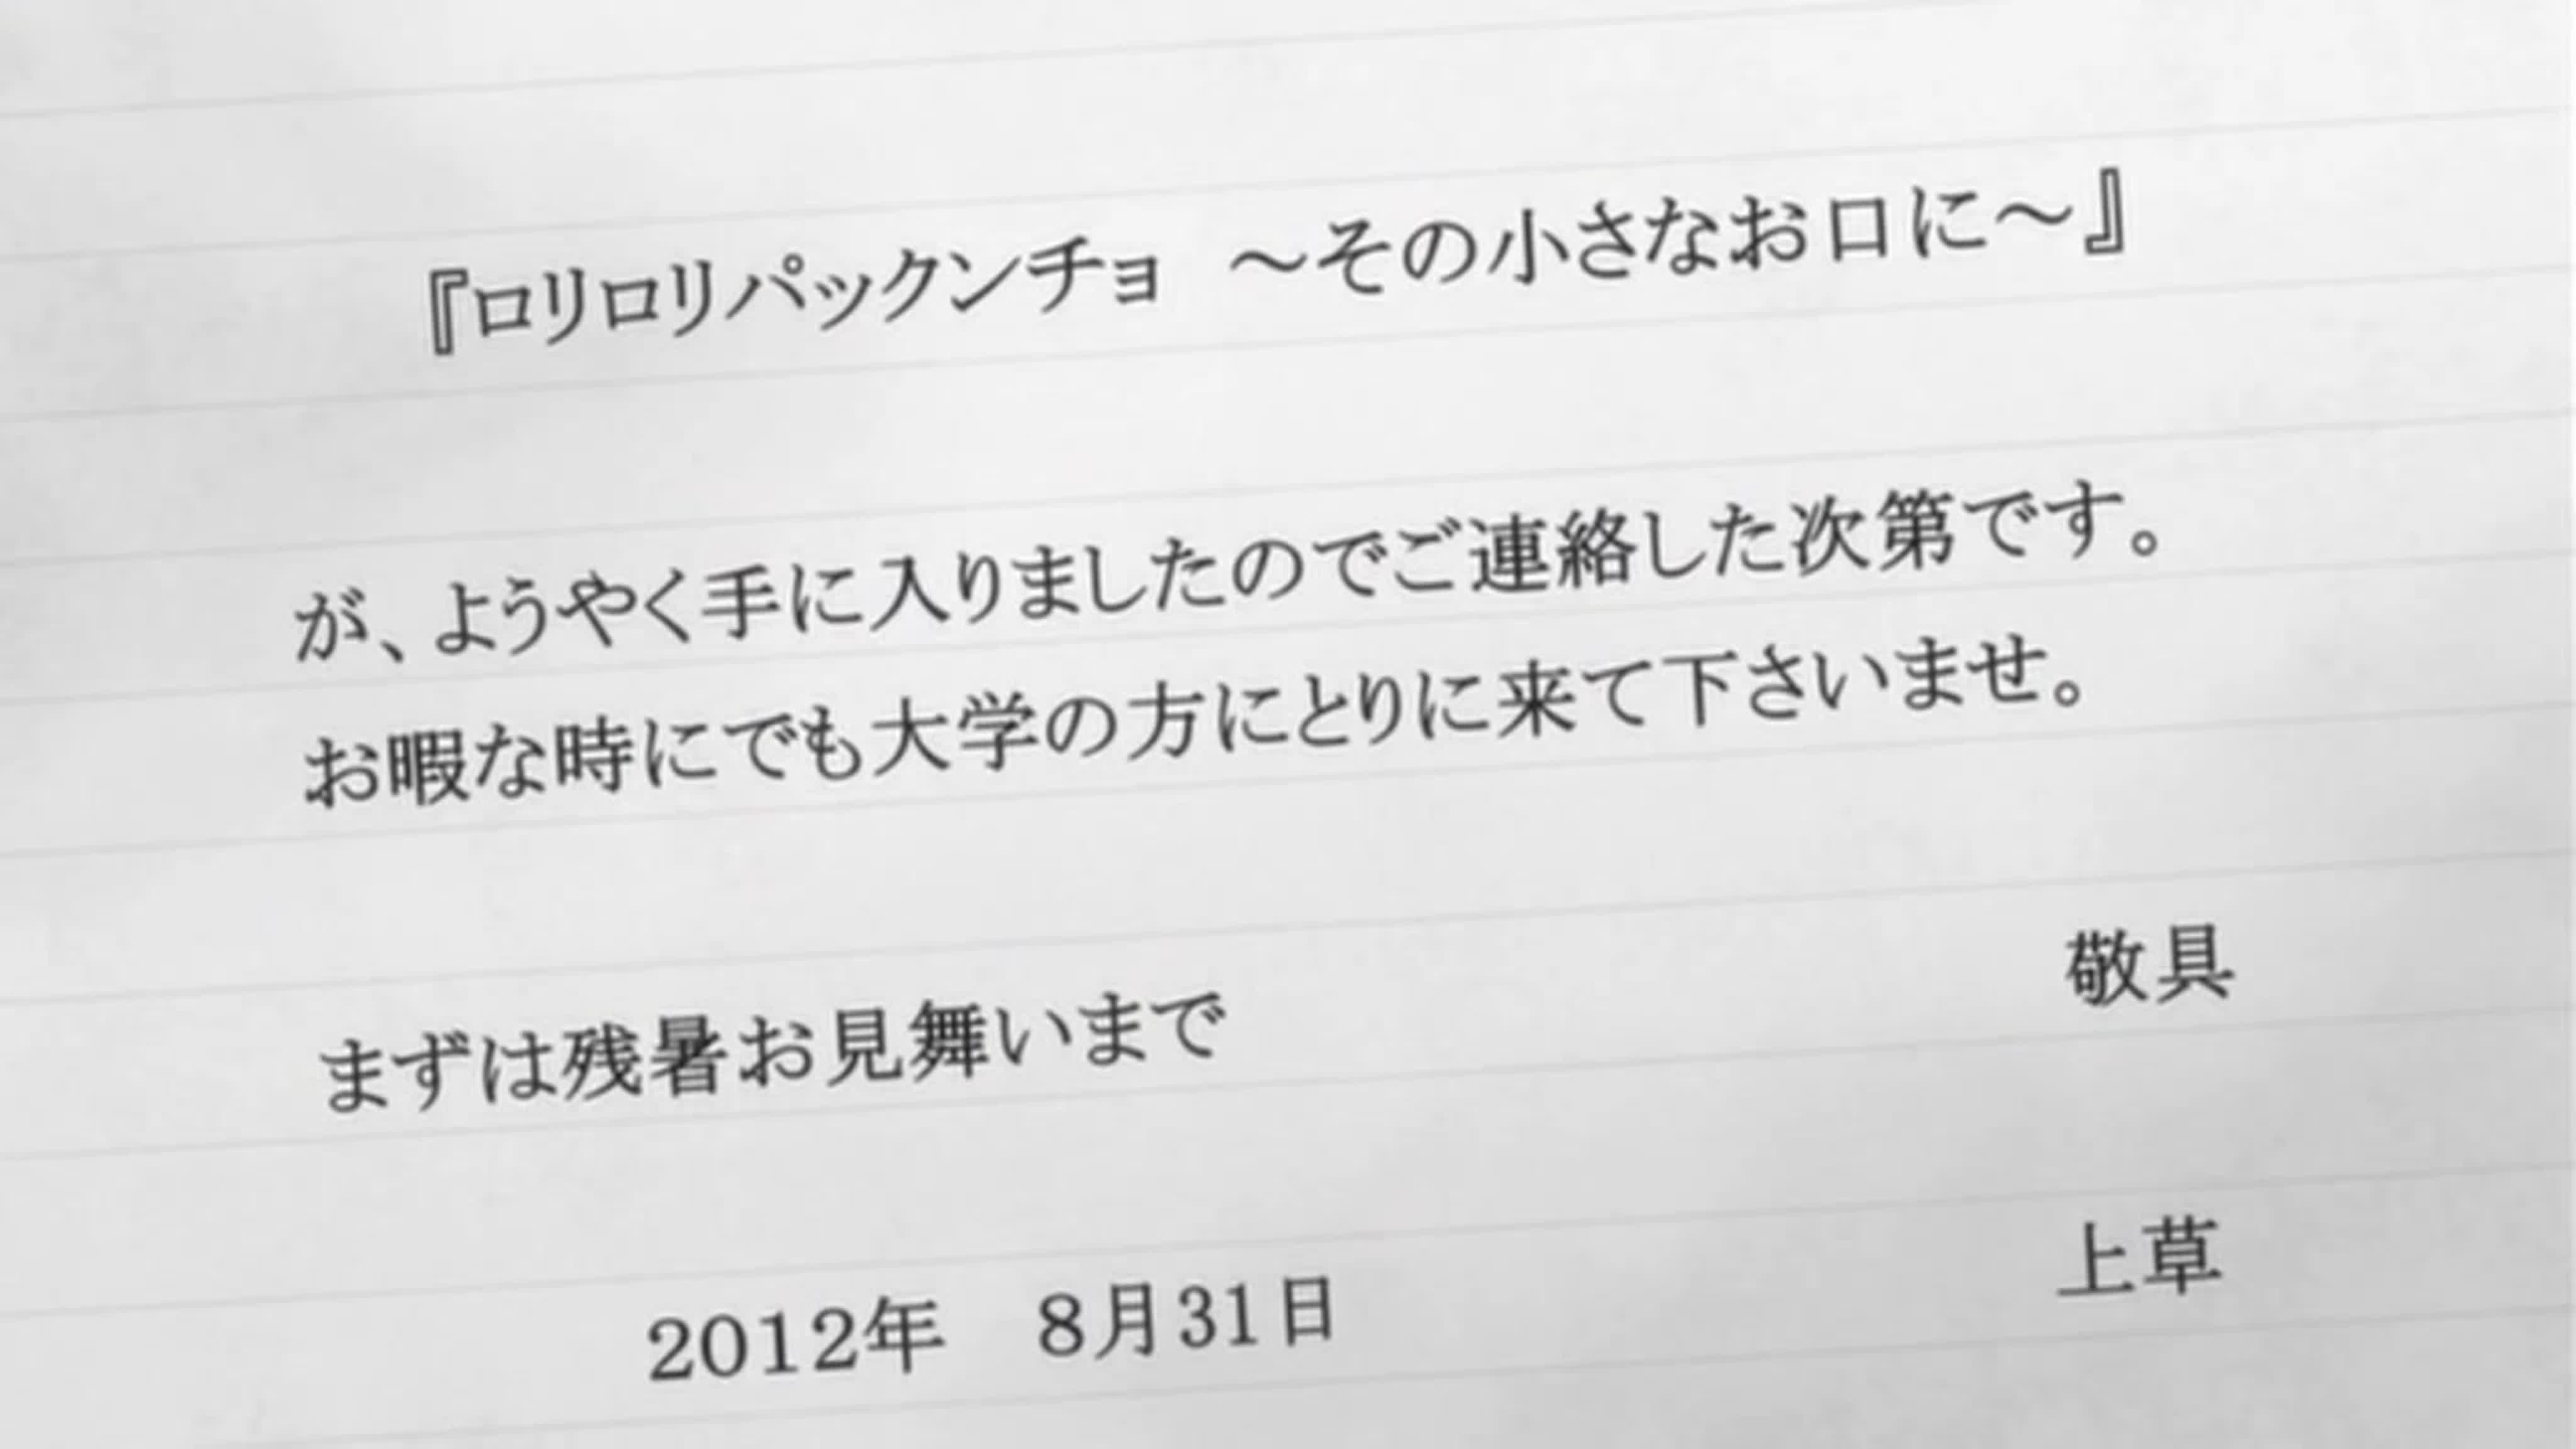 『ロリロリパックンチョ　～その小さなお口に～』
が、ようやく手に入りましたのでご連絡した次第です。
お暇な時にでも大学の方にとりに来て下さいませ。
敬具
まずは残暑お見舞いまで
上草
2012年　8月31日